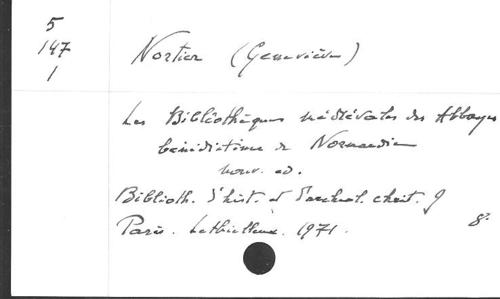 5
147
1
Nortier (Geneviève)
Les Bibliothèques médiévales des Abbayes
bénédictines de Normandie
nouv. ed.
Biblioth. d'hist. et d'archeol. chret. 9
Paris. Lethielleux. 1971.
8°